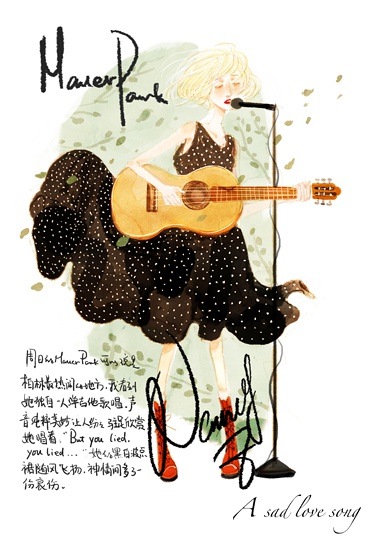 Mauer Park
周日的Mauer Park可以说是
柏林最热闹的地方,我看到
她独自一人弹吉他歌唱,声
音纯粹美妙让人纷纷驻足欣赏
她唱着,“But you lied,
you lied...”她的黑白波点
裙随风飞扬,神情间多了一
份哀伤。
A sad love song